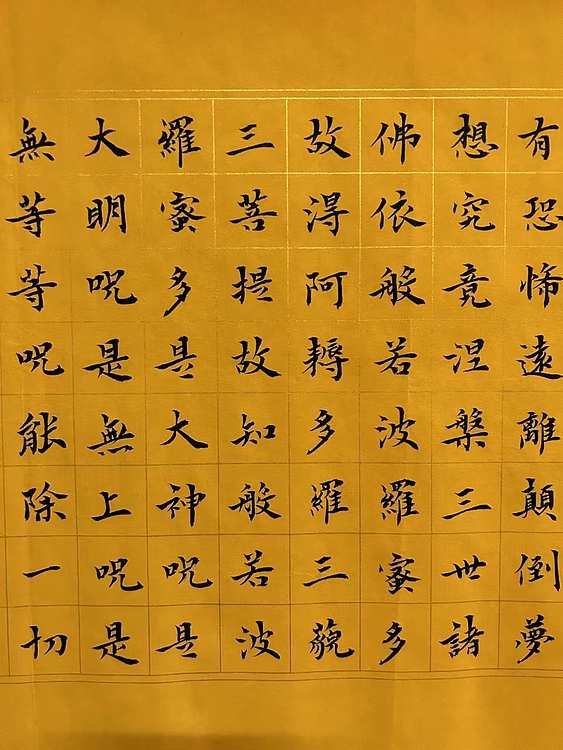 有恐怖遠離顛倒夢
想究竟涅槃三世諸
佛依般若波羅蜜多
故得阿耨多羅三藐
三菩提故知般若波
羅蜜多是大神呪是
大明呪是無上呪是
無等等呪能除一切